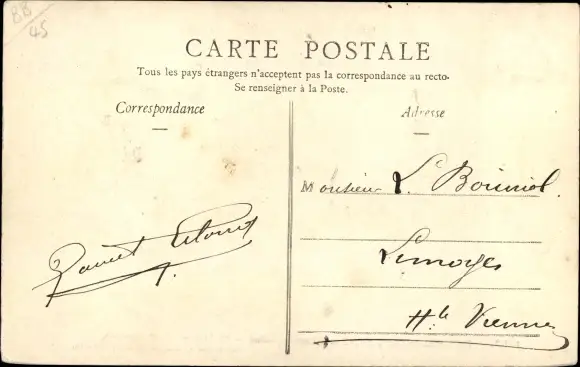 BB
45
CARTE POSTALE
Tous les pays étrangers n'acceptent pas la correspondance au recto-
Se renseigner à la Poste.
Correspondance
Adresse
Monsieur L.
Limoges
Hte Vienne